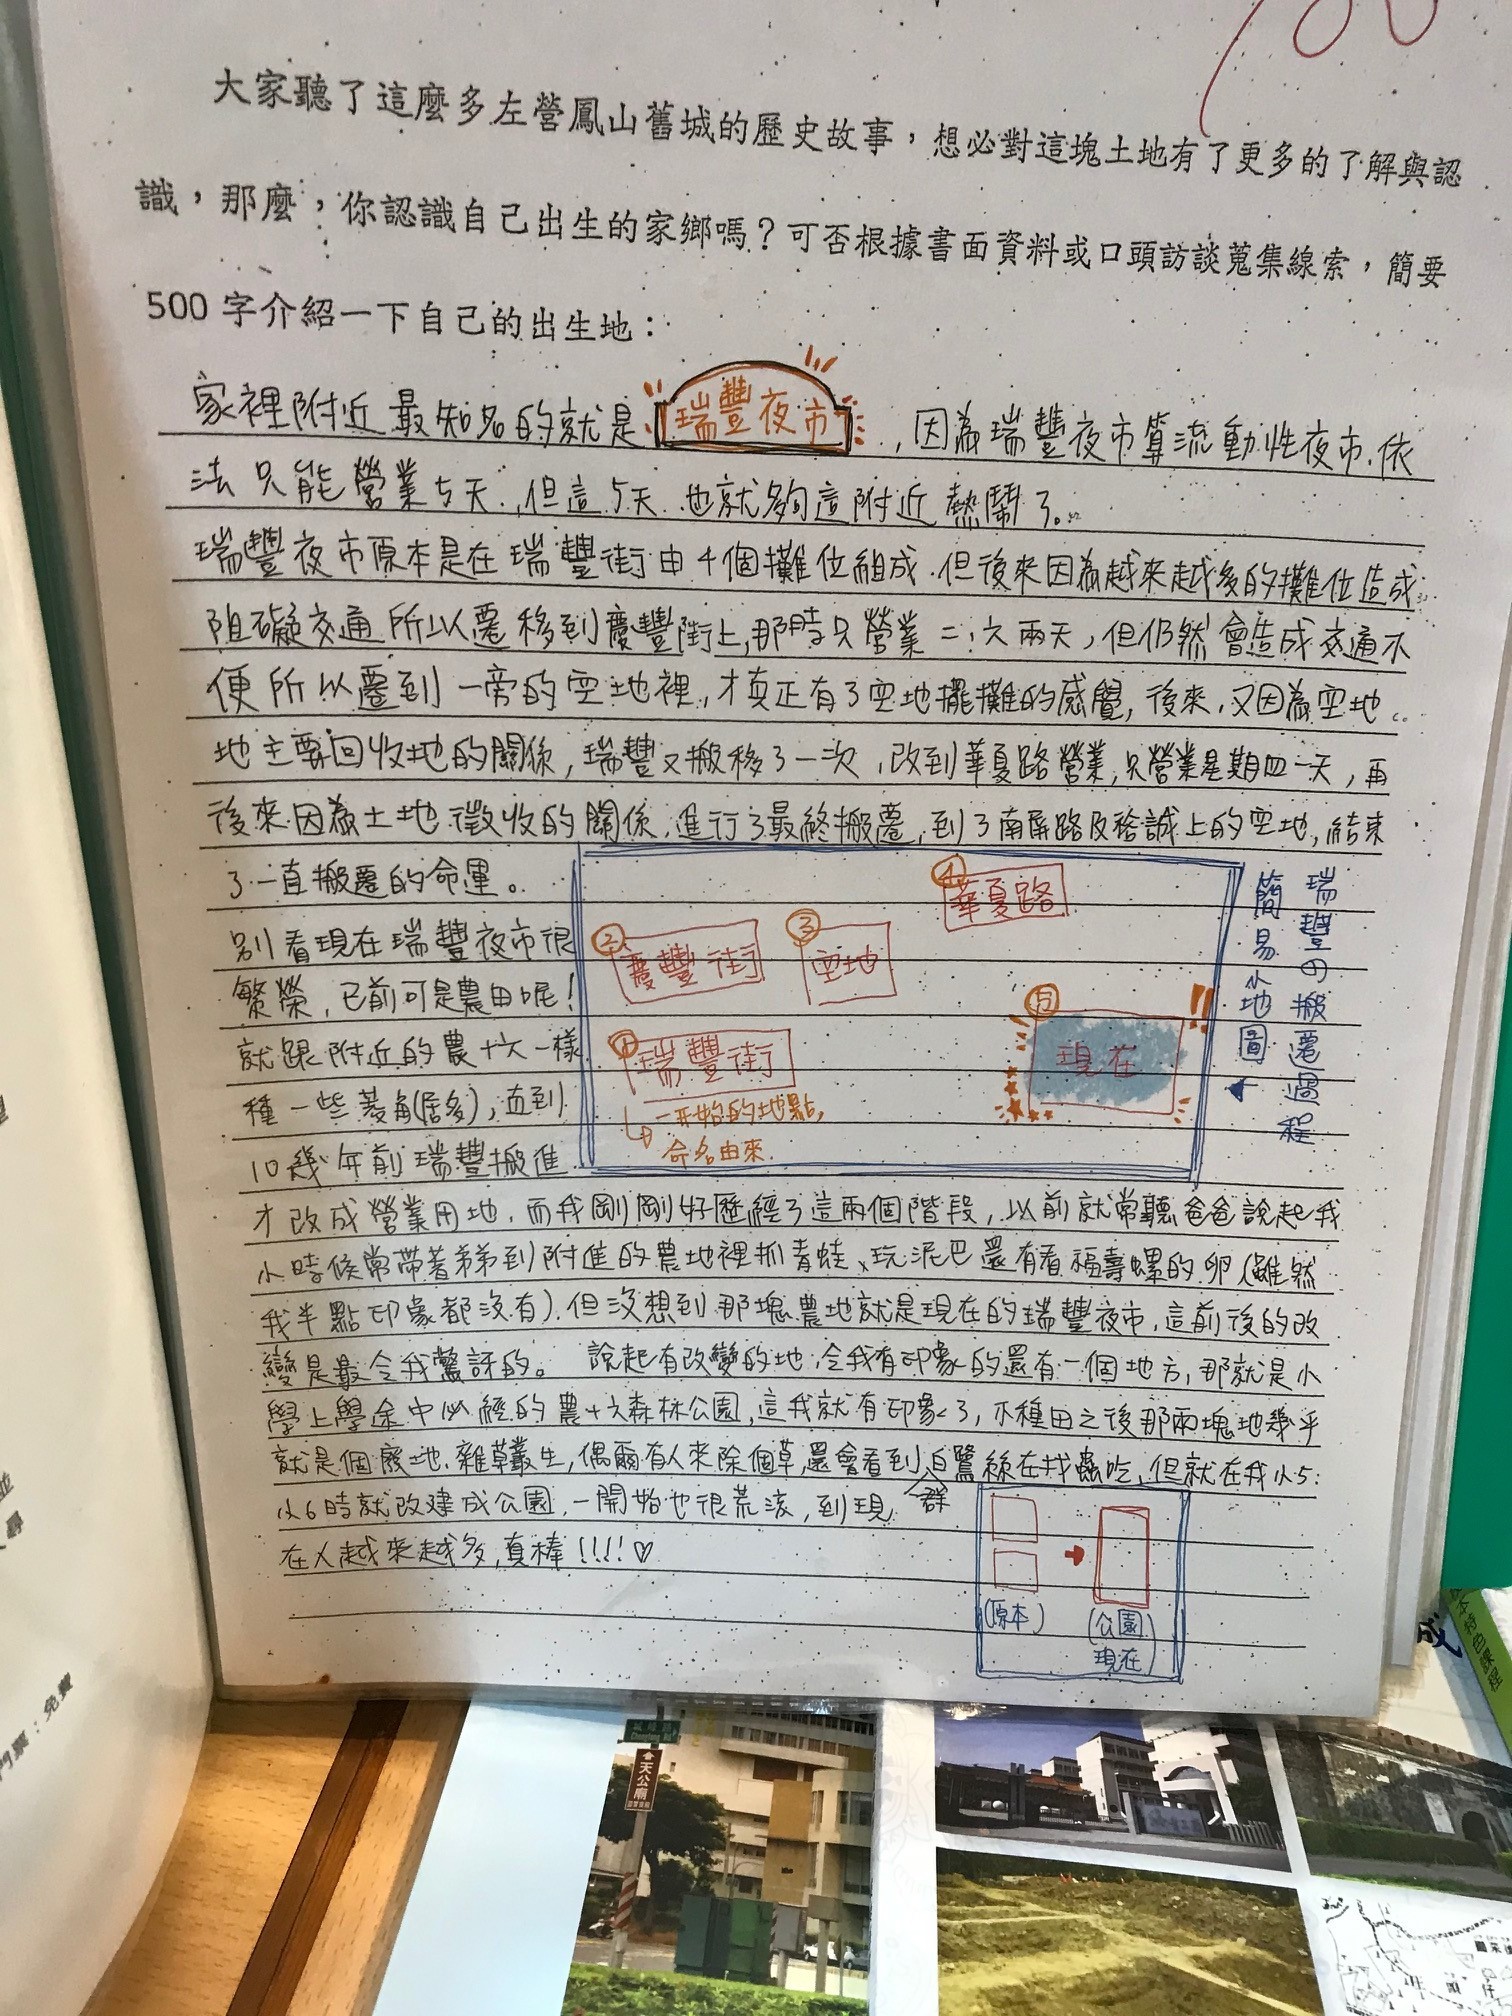 大家聽了這麼多左營鳳山舊城的歷史故事，想必對這塊土地有了更多的了解與認
識，那麼，你認識自己出生的家鄉嗎？可否根據書面資料或口頭訪談蒐集線索，簡要
500 字介紹一下自己的出生地：
家裡附近最知名的就是 瑞豐夜市 ，因為瑞豐夜市算流動性夜市，依
法只能營業5天，但這5天也就夠這附近熱鬧了。
瑞豐夜市原本是在瑞豐街由4個攤位組成，但後來因為越來越多的攤位造成
阻礙交通所以遷移到慶豐街上，那時只營業二、六兩天，但仍然會造成交通不
便所以遷到一旁的空地裡，才真正有了空地擺攤的感覺，後來，又因為空地
地主要回收地的關係，瑞豐又搬移了一次，改到華夏路營業，只營業星期四一天，再
後來因為土地徵收的關係，進行了最終搬遷，到了南屏路及裕誠上的空地，結束
了一直搬遷的命運。
別看現在瑞豐夜市很
繁榮，已前可是農田呢！
就跟附近的農十六一樣
種一些菱角(居多)，直到
10幾年前瑞豐搬進
才改成營業用地，而我剛剛好歷經了這兩個階段，以前就常聽爸爸說起我
小時候常帶著弟弟到附進的農地裡抓青蛙、玩泥巴還有看福壽螺的卵(雖然
我半點印象都沒有)，但沒想到那塊農地就是現在的瑞豐夜市，這前後的改
變是最令我驚訝的。 說起有改變的地，令我有印象的還有一個地方，那就是小
學上學途中必經的農十六森林公園，這我就有印象了，不種田之後那兩塊地幾乎
就是個廢地，雜草叢生，偶爾有人來除個草，還會看到一群白鷺絲在找蟲吃，但就在我小5、
小6時就改建成公園，一開始也很荒涼，到現
在人越來越多，真棒!!!!♡
瑞豐の搬遷過程
簡易小地圖
④ 華夏路
② 慶豐街
③ 空地
⑤ 現在 !!
① 瑞豐街
一開始的地點，
命名由來.
(原本)
(公園
現在)
天公廟
門票：免費